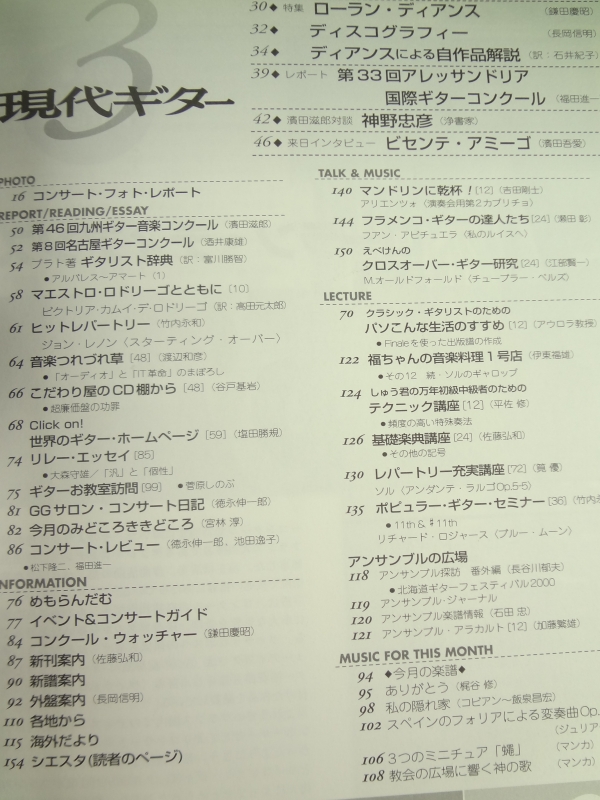 3
現代ギター
30◆ 特集 ローラン・ディアンス (鎌田慶昭)
32◆ ディスコグラフィー (長岡信明)
34◆ ディアンスによる自作品解説 (訳：石井紀子)
39◆ レポート 第33回アレッサンドリア
国際ギターコンクール (福田進一)
42◆ 濱田滋郎対談 神野忠彦 (浄書家)
46◆ 来日インタビュー ビセンテ・アミーゴ (濱田吾愛)
PHOTO
16 コンサート・フォト・レポート
REPORT/READING/ESSAY
50 第46回九州ギター音楽コンクール (濱田滋郎)
52 第8回名古屋ギターコンクール (酒井康雄)
54 プラト著 ギタリスト辞典 (訳：富川勝智)
●アルバレス〜アマート (1)
58 マエストロ・ロドリーゴとともに [10]
ビクトリア・カムイ・デ・ロドリーゴ (訳：高田元太郎)
61 ヒットレパートリー (竹内永和)
ジョン・レノン〈スターティング・オーバー〉
64 音楽つれづれ草 [48] (渡辺和彦)
●「オーディオ」と「IT革命」のまぼろし
66 こだわり屋のCD棚から [48] (谷戸基岩)
●超廉価盤の功罪
68 Click on!
世界のギター・ホームページ [59] (塩田勝規)
74 リレー・エッセイ [85]
●大森守雄／「汎」と「個性」
75 ギターお教室訪問 [99] ●菅原しのぶ
81 GGサロン・コンサート日記 (徳永伸一郎)
82 今月のみどころききどころ (宮林 淳)
86 コンサート・レビュー (徳永伸一郎、池田逸子)
●松下隆二、福田進一
INFORMATION
76 めもらんだむ
77 イベント&コンサートガイド
84 コンクール・ウォッチャー (鎌田慶昭)
87 新刊案内 (佐藤弘和)
90 新譜案内
92 外盤案内 (長岡信明)
110 各地から
115 海外だより
154 シエスタ(読者のページ)
TALK & MUSIC
140 マンドリンに乾杯！[12] (吉田剛士)
アリエンツォ〈演奏会用第2カプリチョ〉
144 フラメンコ・ギターの達人たち [24] (瀬田 彰)
フアン・アビチュエラ〈私のルイスへ〉
150 えべけんの
クロスオーバー・ギター研究 [24] (江部賢一)
M.オールドフォールド〈チューブラー・ベルズ〉
LECTURE
70 クラシック・ギタリストのための
パソこんな生活のすすめ [12] (アウロラ教授)
●Finaleを使った出版譜の作成
122 福ちゃんの音楽料理1号店 (伊東福雄)
●その12 続・ソルのギャロップ
124 しゅう君の万年初級中級者のための
テクニック講座 [12] (平佐 修)
●頻度の高い特殊奏法
126 基礎楽典講座 [24] (佐藤弘和)
●その他の記号
130 レパートリー充実講座 [72] (莧 優)
ソル〈アンダンテ・ラルゴOp.5-5〉
135 ポピュラー・ギター・セミナー [36] (竹内永
●11th & ♯11th
リチャード・ロジャース〈ブルー・ムーン〉
アンサンブルの広場
118 アンサンブル探訪 番外編 (長谷川郁夫)
●北海道ギターフェスティバル2000
119 アンサンブル・ジャーナル
120 アンサンブル楽譜情報 (石田 忠)
121 アンサンブル・アラカルト [12] (加藤繁雄)
MUSIC FOR THIS MONTH
94 ◆今月の楽譜◆
95 ありがとう (梶谷 修)
98 私の隠れ家 (コビアン〜飯泉昌宏)
102 スペインのフォリアによる変奏曲Op.
(ジュリア
106 3つのミニチュア「蠅」 (マンカ)
108 教会の広場に響く神の歌 (マンカ)